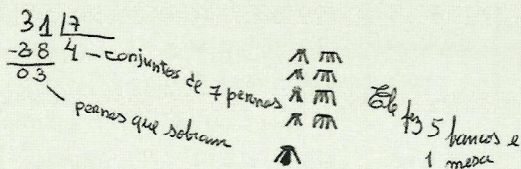 31 7
-28 4 - conjuntos de 7 pernas
03
pernas que sobram
Ele fez 5 bancos e
1 mesa